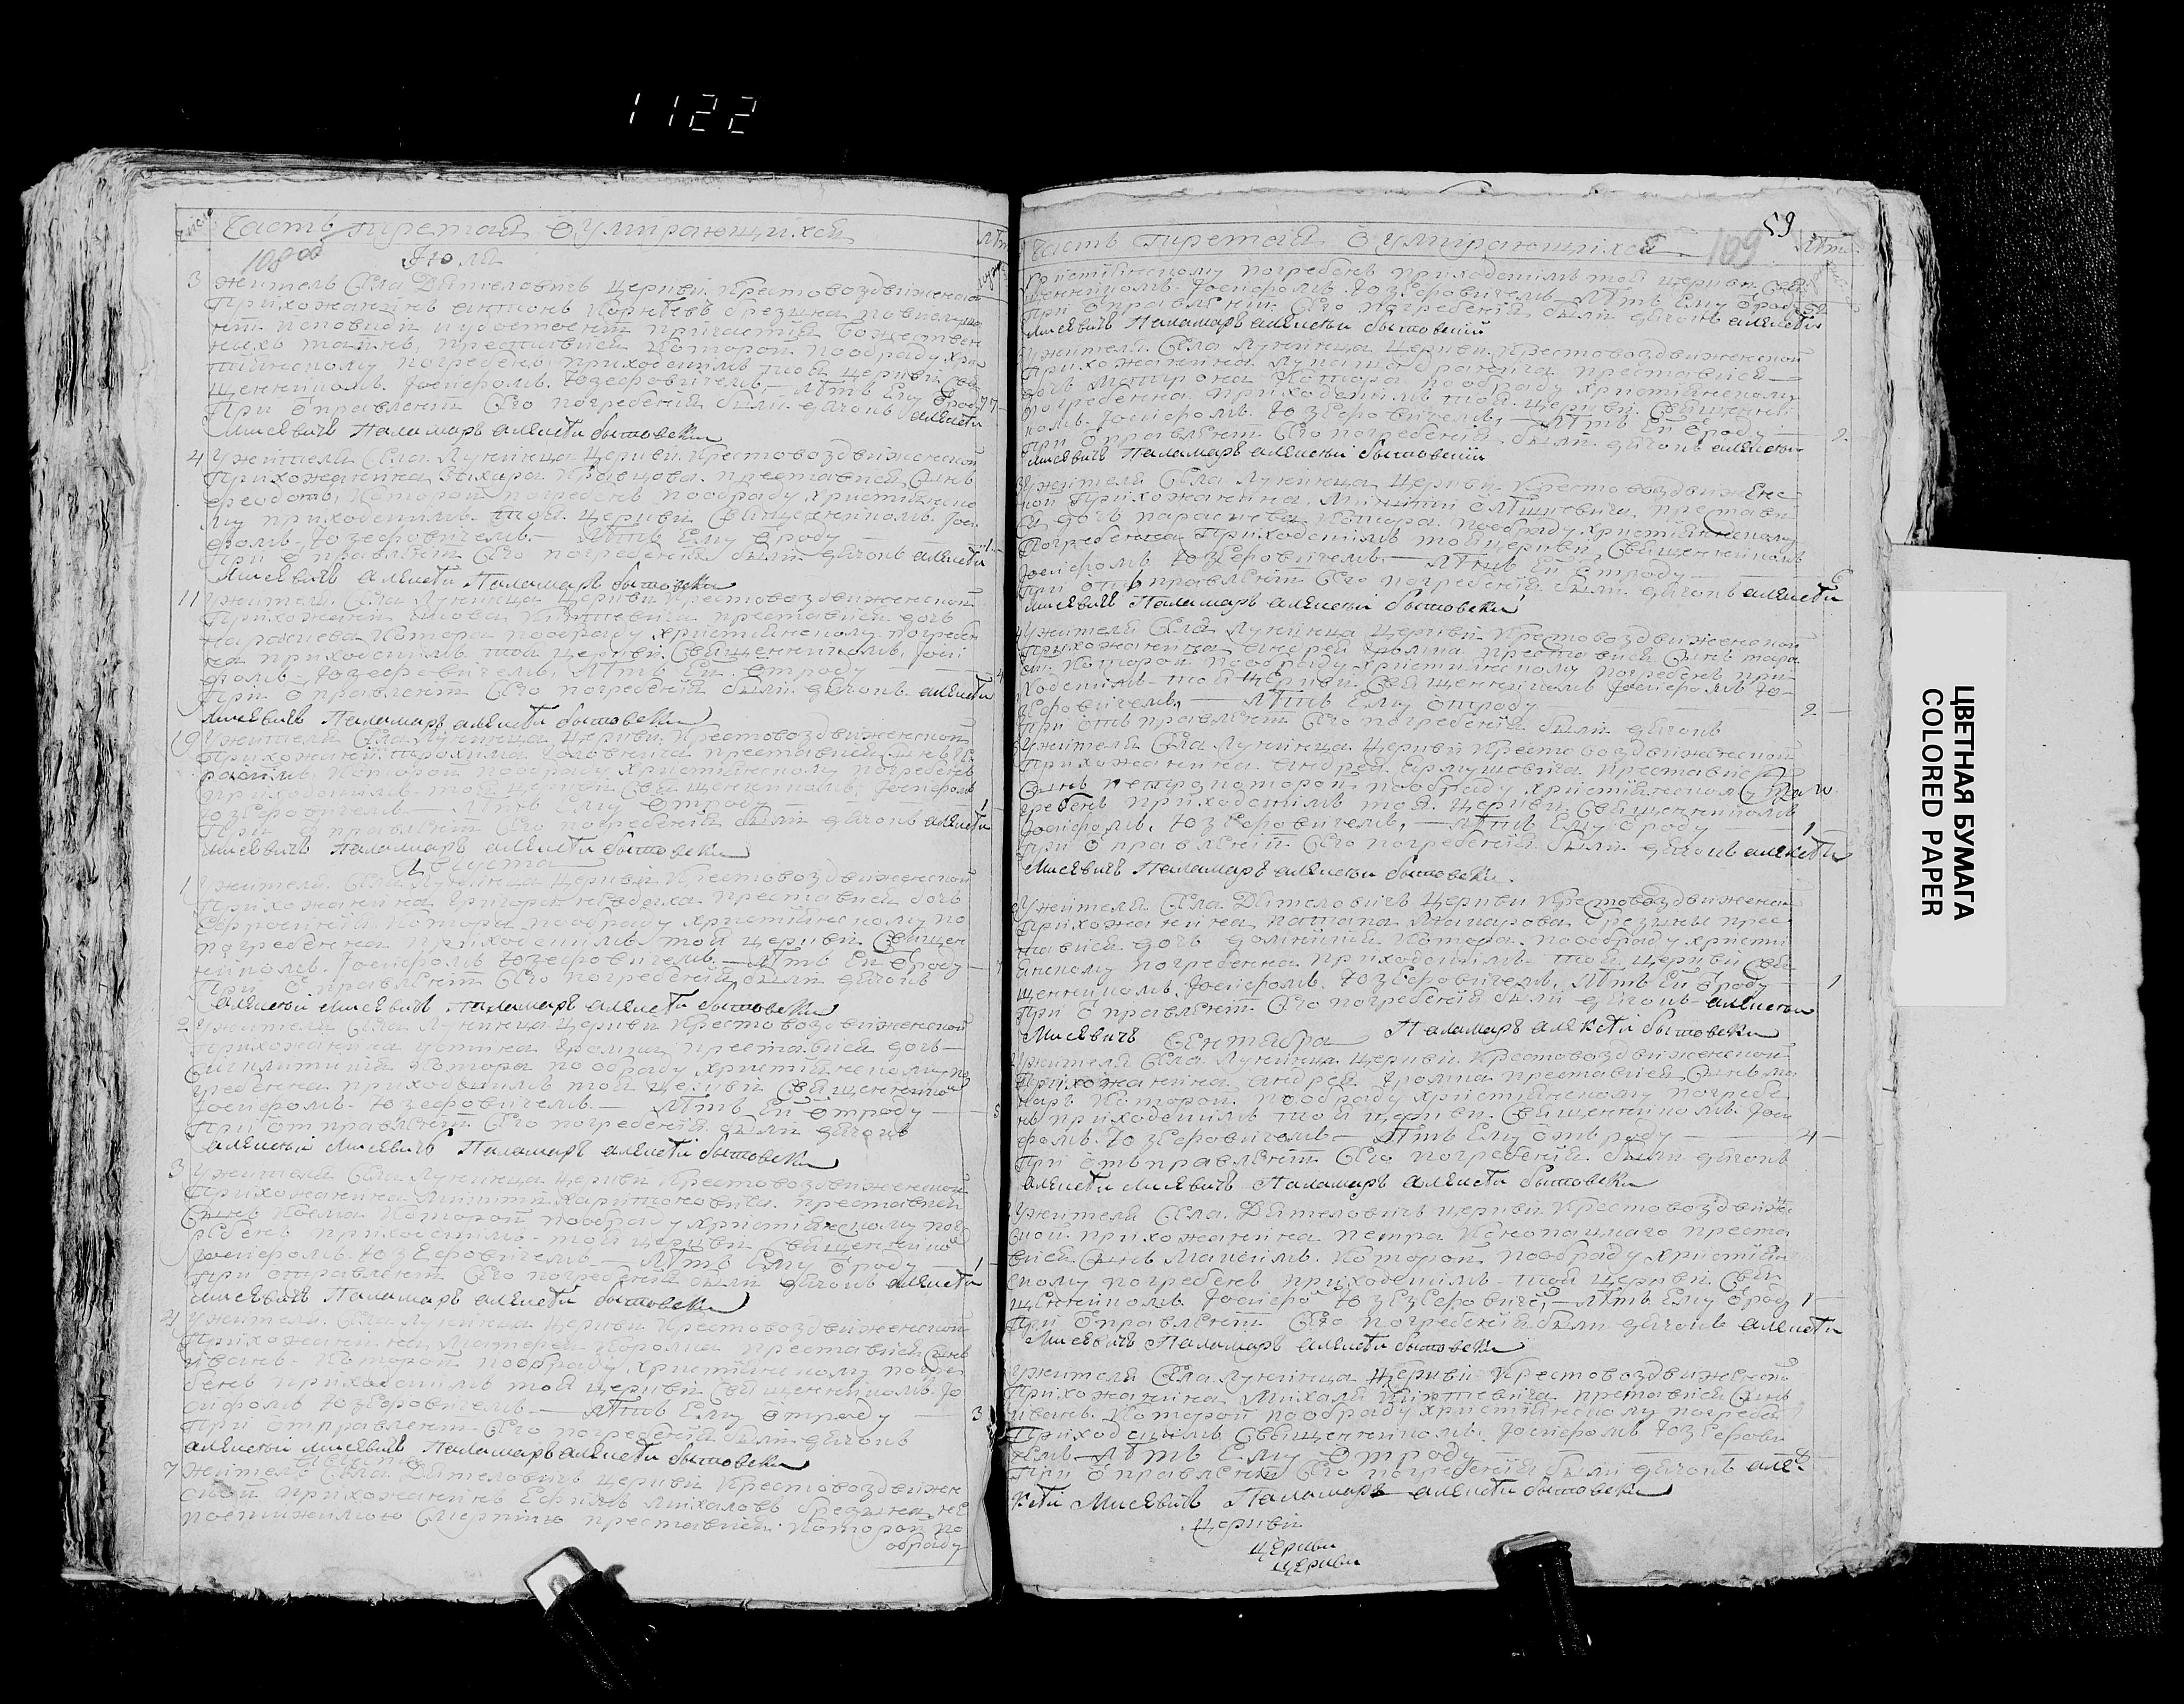 1122
Число
Часть третая о Умирающихся
Лѣта
108 об
Июля
3 житель Села Дятеловичъ Церкви Крестовоздвиженско
Прихожанинъ антонъ Корнѣевъ брезина
исповѣди и удостоенъ причастія Божествен
ныхъ таинъ, преставися которой пообряду хри
стіянскому погребенъ приходскимъ той Церкви Свя
щенникомъ Іосифомъ Юзефовичемъ — лѣтъ Ему отроду 77
При отправленіи Его погребенія были дячокъ алексѣй
Мисевичъ Паламаръ алексѣй бытовски
4 Ужителя Села Лунинца Церкви Крестовоздвиженской
Прихожанина Захара Кравцова преставися Синъ
феодотъ, которой погребенъ пообряду христіянско
му приходскимъ той Церкви Священникомъ Іоси
фомъ Юзефовичемъ — лѣтъ Ему отроду
при отправленіи Его погребенія были дячокъ алексѣй
Мисевичъ алексѣй Паламаръ бытовски
11 Ужителя Села Лунинца Церкви Крестовоздвиженской
Прихожанина преставися дочь
параскева котора пообряду христіянскому погребен
на приходскимъ той Церкви Священникомъ Іоси
фомъ Юзефовичемъ, лѣтъ Ей отроду 4
При отправленіи Его погребенія были дячокъ алексѣй
Мисевичъ Паламаръ алексѣй бытовски
19 Ужителя Села Лунинца Церкви Крестовоздвиженской
Прихожанина трохима преставися Синъ
которой пообряду христіянскому погребенъ
приходскимъ той Церкви Священникомъ Іосифомъ
Юзефовичемъ — лѣтъ Ему отроду 1
При отправленіи Его погребенія были дячокъ алексѣй
Мисевичъ Паламаръ алексѣй бытовски
Августа
1 Ужителя Села Лунинца Церкви Крестовоздвиженской
Прихожанина Григора преставися дочь
котора пообряду христіянскому по
погребенна приходскимъ той Церкви Священ
никомъ Іосифомъ Юзефовичемъ — лѣтъ Ей отроду 7
При отправленіи Его погребенія были дячокъ
алексѣй Мисевичъ Паламаръ алексѣй бытовски
2 Ужителя Села Лунинца Церкви Крестовоздвиженской
Прихожанина Громца преставися дочь
котора пообряду христіянскому по
гребенна приходскимъ той Церкви Священником
Іосифомъ Юзефовичемъ — лѣтъ Ей отроду 5
При отправленіи Его погребенія были дячокъ
алексѣй Мисевичъ Паламаръ алексѣй бытовски
3 Ужителя Села Лунинца Церкви Крестовоздвиженской
Прихожанина Микити харитоновича преставися
Синъ Козма которой пообряду христіянскому пог
ребенъ приходскимъ той Церкви Священнико
Іосифомъ Юзефовичемъ — лѣтъ Ему отроду 1
При отправленіи Его погребенія были дячокъ алексѣй
Мисевичъ Паламаръ алексѣй бытовски
4 Ужителя Села Лунинца Церкви Крестовоздвиженской
Прихожанина преставися Синъ
иванъ которой пообряду христіянскому погре
бенъ приходскимъ той Церкви Священникомъ Іо
сифомъ Юзефовичемъ — лѣтъ Ему отроду 3
При отправленіи Его погребенія были дячокъ
алексѣй Мисевичъ Паламаръ алексѣй бытовски
7 Житель Села Дятеловичъ Церкви Крестовоздвижен
ской прихожанинъ Ефимъ Михаловъ брезина не
постижимою Смертію преставися которой по
обряду
59
109
Часть третая о Умирающихся
Лѣта
христіянскому погребенъ приходскимъ той церкви Свя
щенникомъ Іосифомъ Юзефовичемъ — лѣтъ Ему отроду
При отправленіи Его погребенія были дячокъ алексѣй
Мисевичъ Паламаръ алексѣй бытовский
Ужителя Села Лунинца Церкви Крестовоздвиженской
Прихожанина преставися
дочь котора пообряду христіянскому
погребенна приходскимъ той церкви Священни
комъ Іосифомъ Юзефовичемъ, — лѣтъ Ей отроду 2
При отправленіи Его погребенія были дячокъ алексѣй
Мисевичъ Паламаръ алексѣй бытовский
Ужителя Села Лунинца Церкви Крестовоздвиженс
кой Прихожанина Микити престави
ся дочь параскева котора пообряду христіянскому
Погребенна Приходскимъ той церкви Священникомъ
Іосифомъ Юзефовичемъ — лѣтъ Ей отроду 6
При отправленіи Его погребенія были дячокъ алексѣй
Мисевичъ Паламаръ алексѣй бытовски
Ужителя Села Лунинца Церкви Крестовоздвиженской
Прихожанина андрея громца преставися Синъ тара
сь которой пообряду христіянскому погребенъ при
ходскимъ той Церкви Священникомъ Іосифомъ Ю
зефовичемъ, — лѣтъ Ему отроду 2
При отправленіи Его погребенія были дячокъ
Ужителя Села Лунинца Церкви Крестовоздвиженской
Прихожанина андрея Ермушевича преставися
Синъ петро которой пообряду христіянском по
гребенъ приходскимъ той церкви Священникомъ
Іосифомъ Юзефовичемъ, — лѣтъ Ему отроду 1
При отправленіи Его погребенія были дячокъ алексѣй
Мисевичъ Паламаръ алексѣй бытовски
Ужителя Села Дятеловичъ Церкви Крестовоздвиженской
Прихожанина потапа брезины прес
тавися дочь котора пообряду христи
янскому погребенна приходскимъ той церкви Свя
щенникомъ Іосифомъ Юзефовичемъ, лѣтъ Ей отроду 1
При отправленіи Его погребенія были дячокъ алексѣй
Мисевичъ Паламаръ алексѣй бытовски
Сентября
Ужителя Села Лунинца Церкви Крестовоздвиженской
Прихожанина андрея громца преставися Синъ ма
каръ которой пообряду христіянскому погребе
нъ приходскимъ той церкви Священникомъ Іоси
фомъ Юзефовичемъ — лѣтъ Ему отроду 4
При отправленіи Его погребенія были дячокъ
алексѣй Мисевичъ Паламаръ алексѣй бытовски
Ужителя Села Дятеловичъ церкви Крестовоздвижен
ской прихожанина петра Конопацкаго преста
вися Синъ Максимъ которой пообряду христіян
скому погребенъ приходскимъ той церкви Свя
щенникомъ Іосифо Юзефовиче, — лѣтъ Ему отроду 1
При отправленіи Его погребенія были дячокъ алексѣй
Мисевичъ Паламаръ алексѣй бытовски
Ужителя Села Лунинца Церкви Крестовоздвиженско
Прихожанина Михаля преставися Синъ
иванъ которой пообряду христіянскому погребен
Приходскимъ Священникомъ Іосифомъ Юзефови
чемъ — лѣтъ Ему отроду
При отправленіи Его погребенія были дячокъ але-
ксѣй Мисевичъ Паламаръ алексѣй бытовски
Церкви
Церкви
Церкви
ЦВЕТНАЯ БУМАГА
COLORED PAPER